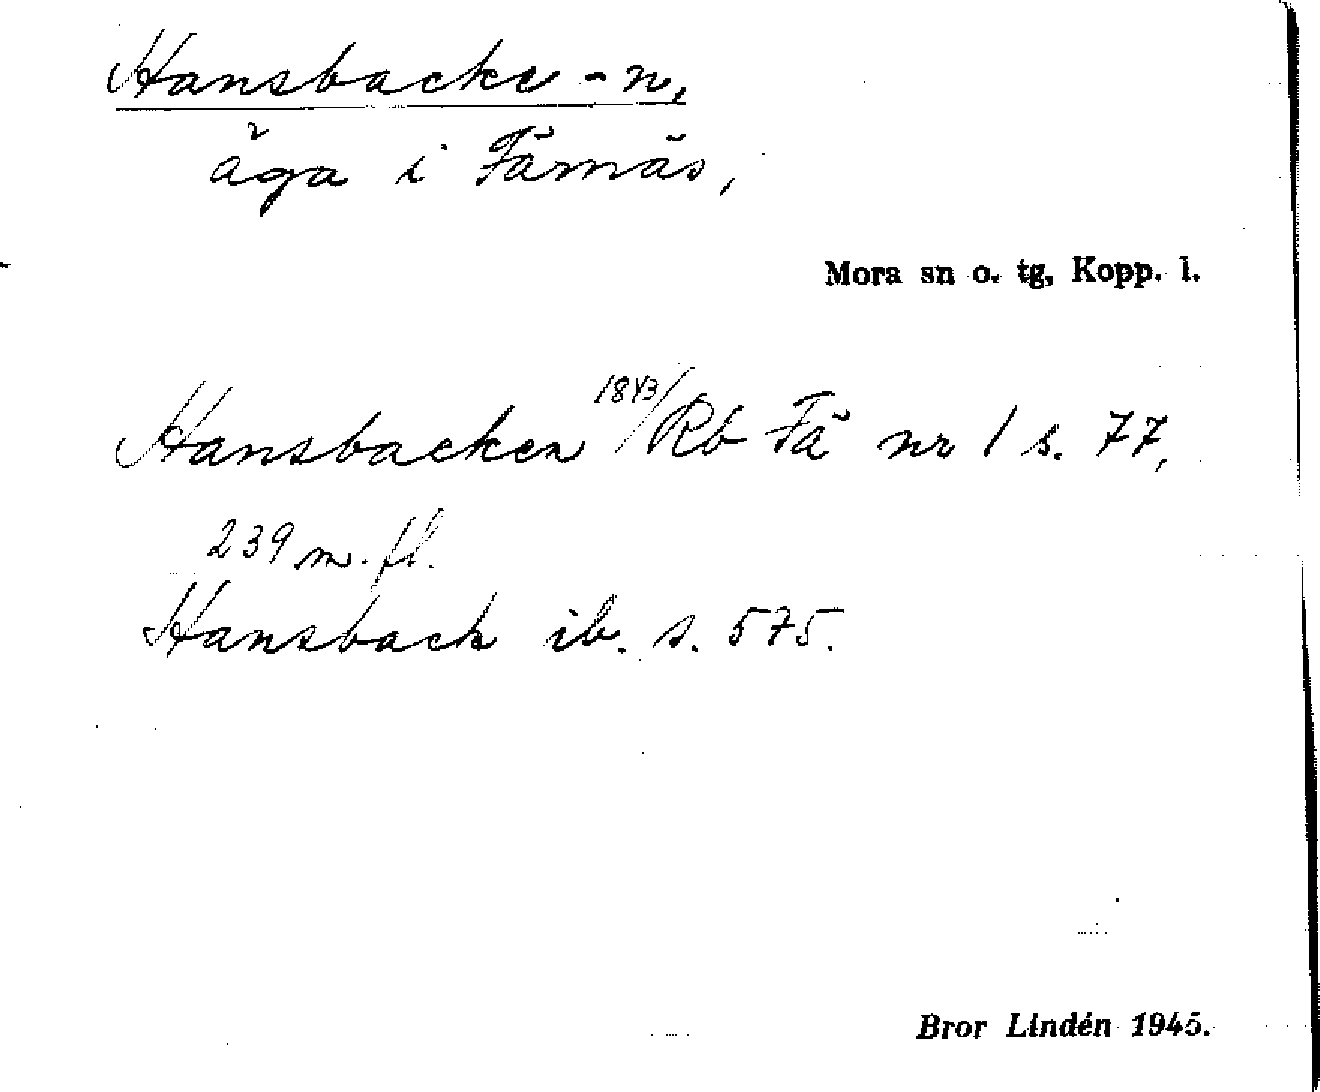 Hansbacke-n,
äga i Färnäs,
Mora sn o. tg, Kopp. l.
Hansbacken 1843/Rb Fä nr 1 s. 77,
239 m. fl.
Hansback ib. s. 575.
Bror Lindén 1945.